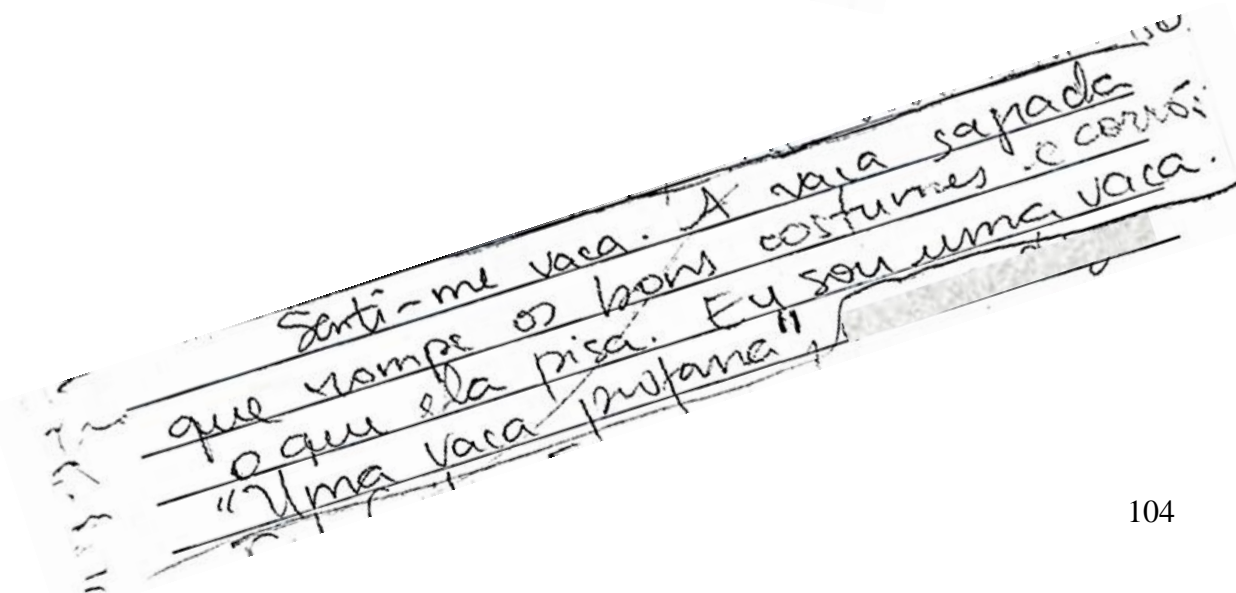 Senti-me vaca. A vaca sagrada
que rompe os bons costumes e corrói
o que ela pisa. Eu sou uma vaca.
"Uma vaca profana"
104